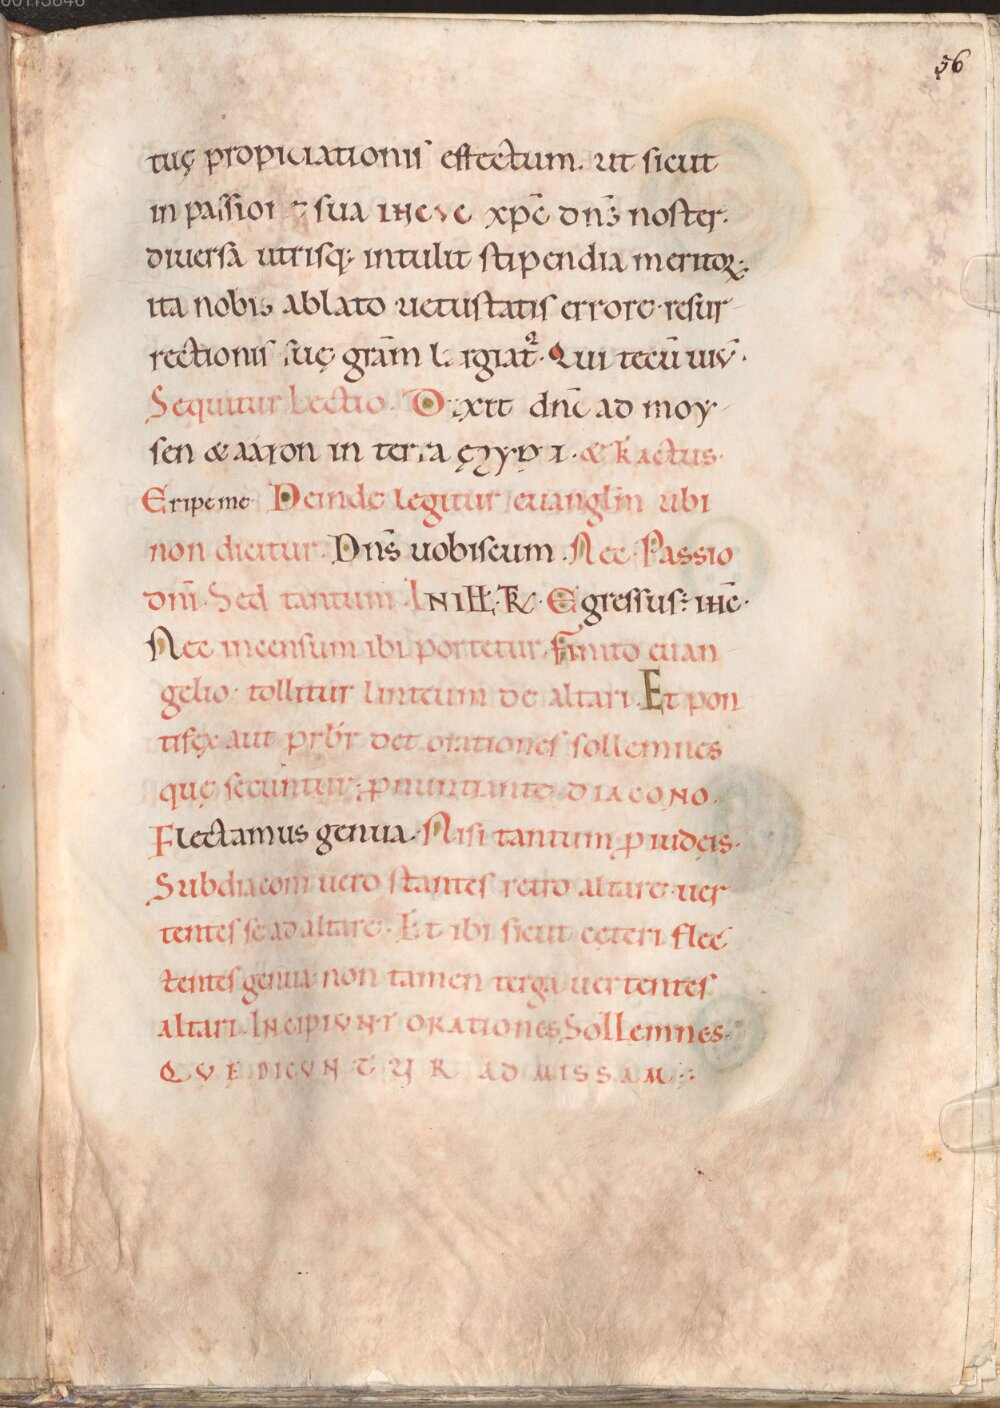 56
tuę propiciationis effectum. ut sicut
in passione sua ihcvc xp̄c dn̄s noster.
diuersa utrisq; intulit stipendia meritoꝝ;
ita nobis ablato uetustatis errore resur-
rectionis suę grām largiat᷑. Qui tecū uiv̄.
Sequitur Lectio. Dixit dn̄s ad moy-
sen & aaron in terra ęgypti. & R actus.
Eripe me Deinde legitur euanglm̄ ubi
non dicitur. Dn̄s uobiscum. Nec Passio
dn̄i. Sed tantum. Egressus: ihc̄.
Nec incensum ibi portetur. finito euan-
gelio. tollitur linteum de altari. Et pon-
tifex aut prb̄r det orationes sollemnes
quę secuntur; ꝓnuntiante DIACONO.
Flectamus genua. Nisi tantum ꝓ iudęis.
Subdiaconi uero stantes retro altare. uer
tentes se ad altare. Et ibi sicut cęteri flec
tentes genua non tamen terga uertentes
altari. INCIPIVNT ORATIONES SOLLEMNES.
QVE DICVNTVR AD MISSAM;